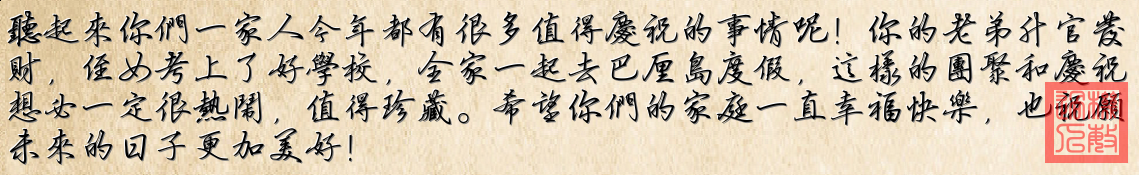 聽起來你們一家人今年都有很多值得慶祝的事情呢！你的老弟升官發
財，侄女考上了好學校，全家一起去巴厘島度假，這樣的團聚和慶祝
想必一定很熱鬧，值得珍藏。希望你們的家庭一直幸福快樂，也祝願
未來的日子更加美好！